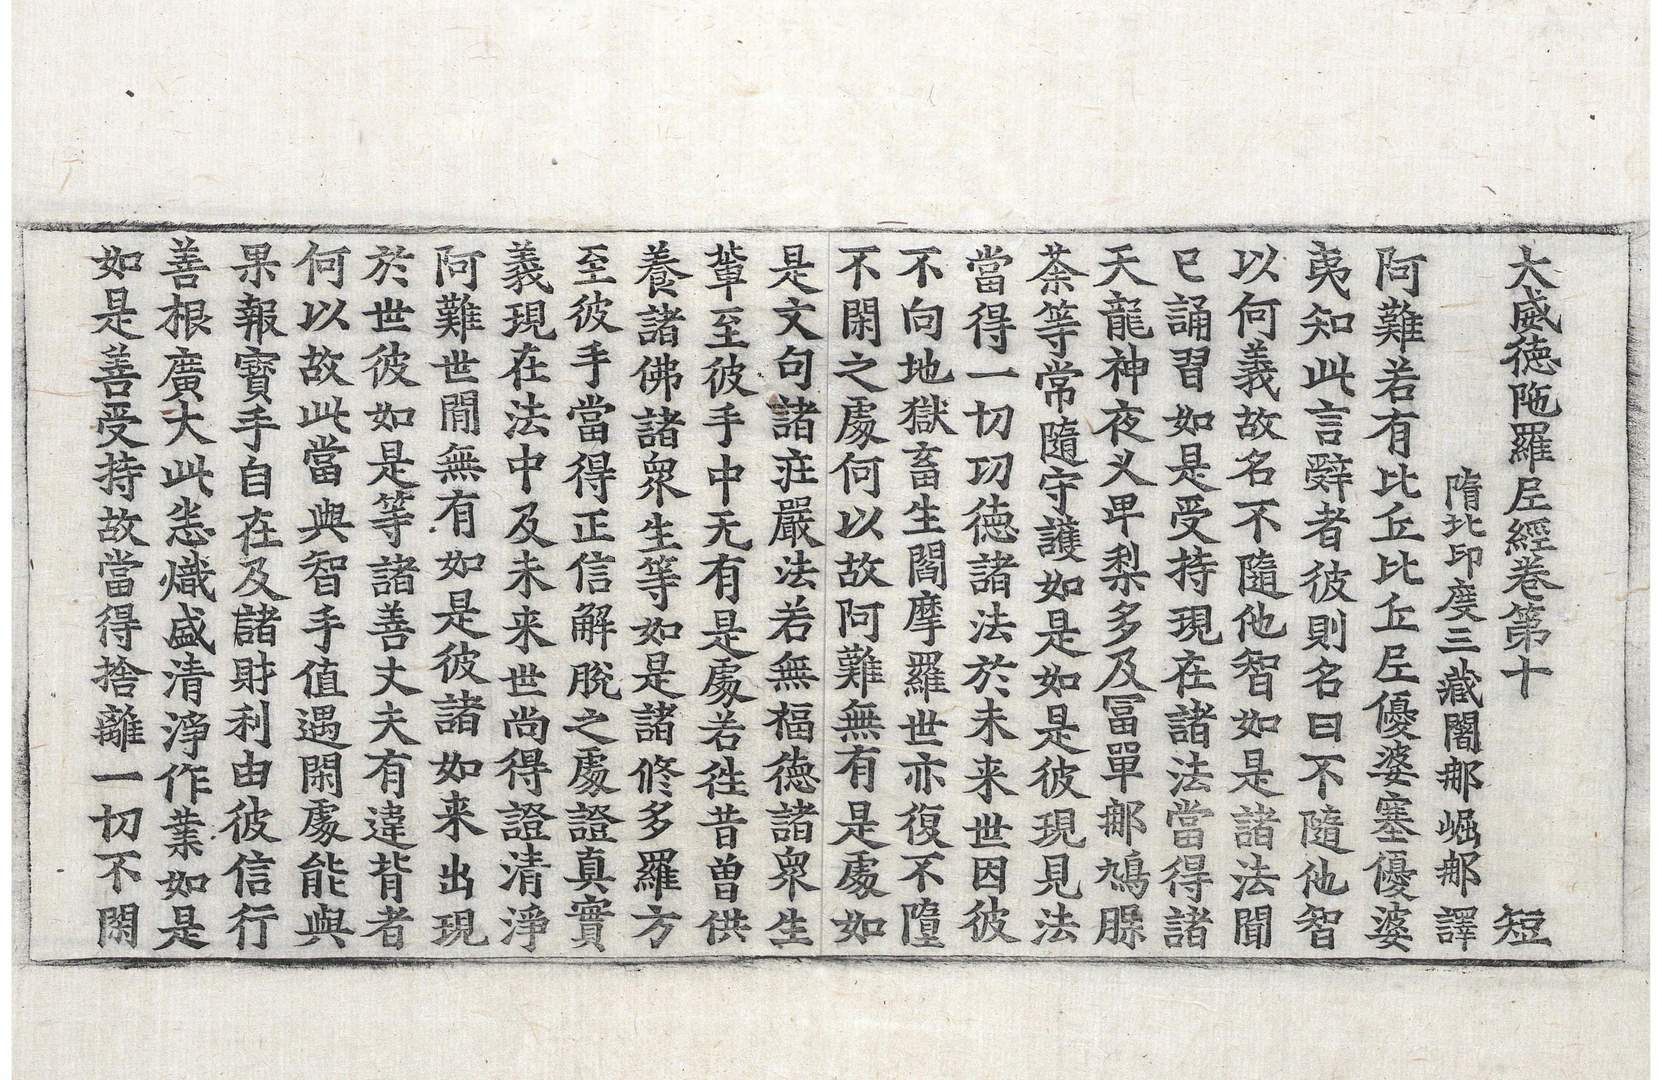 大威德陁羅尼經卷第十 短
隋北印度三藏闍那崛那譯
阿難若有比丘比丘尼優婆塞優婆
夷知此言辭者彼則名曰不隨他智
以何義故名不隨他智如是諸法聞
已誦習如是受持現在諸法當得諸
天龍神夜叉卑梨多及冨單那鳩脲
荼等常隨守護如是如是彼現見法
當得一切功德諸法於未來世因彼
不向地獄畜生閻摩羅世亦復不墮
不閑之處何以故阿難無有是處如
是文句諸莊嚴法若無福德諸衆生
輩至彼手中无有是處若徃昔曾供
養諸佛諸衆生等如是諸修多羅方
至彼手當得正信解脫之處證真實
義現在法中及未来世尚得證清淨
阿難世間無有如是彼諸如来出現
於世彼如是等諸善丈夫有違背者
何以故此當與智手值遇閑處能與
果報寶手自在及諸財利由彼信行
善根廣大此恙熾盛清淨作業如是
如是善受持故當得捨離一切不閑